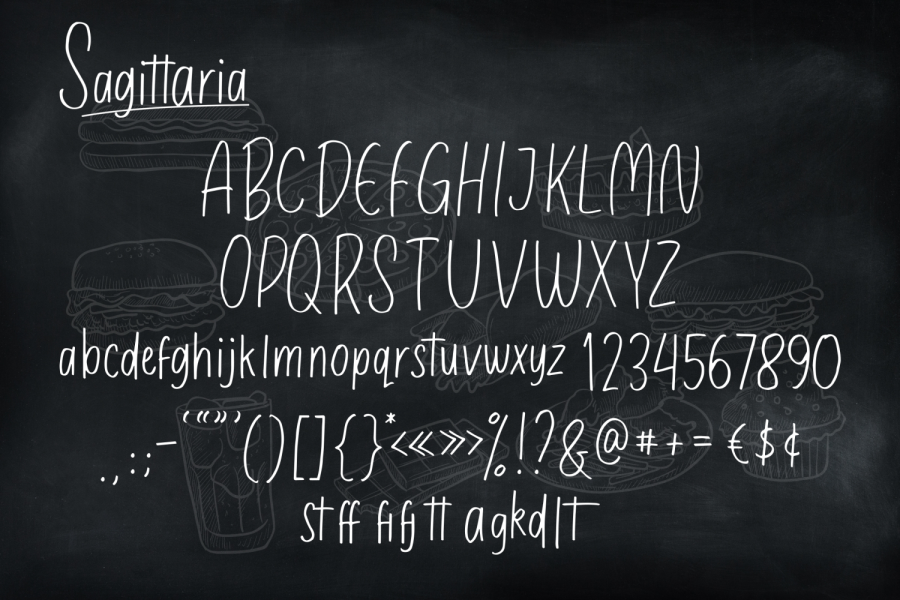 Sagittaria
ABCDEFGHIJKLMN
OPQRSTUVWXYZ
abcdefghijklmnopqrstuvwxyz 1234567890
.,:;-–‘“”’()[]{}*‹«»›%!?&@#+= €$¢
st ff fi fj tt agkdlT